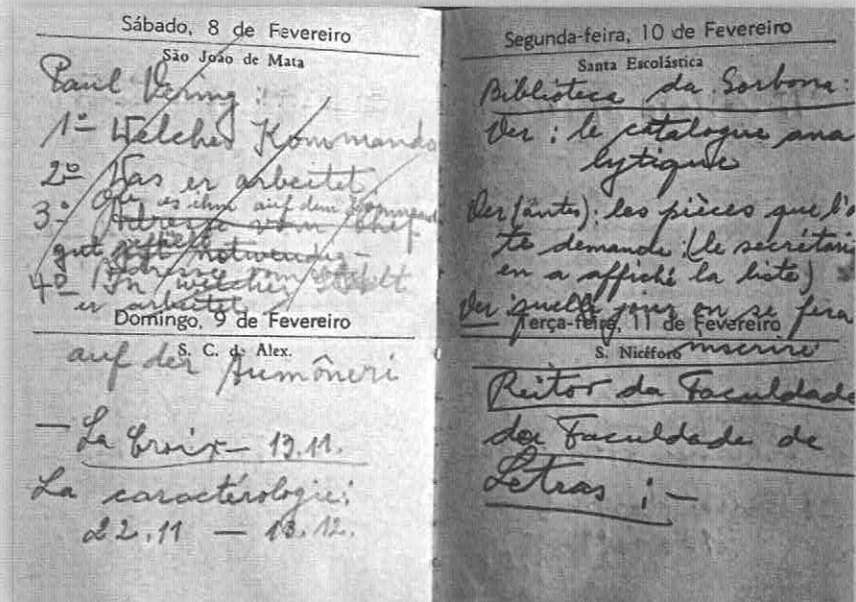 Sábado, 8 de Fevereiro
São João de Mata
Paul
1º Welches Kommando
2º Was er arbeitet
3º es ihm auf dem
gut
4º In welcher Stadt
er arbeitet
Domingo, 9 de Fevereiro
S. C. de Alex.
auf der Aumôneri
– La Croix – 13.11.
La caractérologie:
22.11 – 13.12.
Segunda-feira, 10 de Fevereiro
Santa Escolástica
Biblioteca da Sorbona:
Ver : le catalogue ana
lytique
Ver (antes): les pièces que l'o
te demande: (le secrétari
en a affiché la liste)
Ver quelle jour on se fera
Terça-feira, 11 de Fevereiro
S. Nicéforo
inscrire
Reitor da Faculdade
da Faculdade de
Letras : –